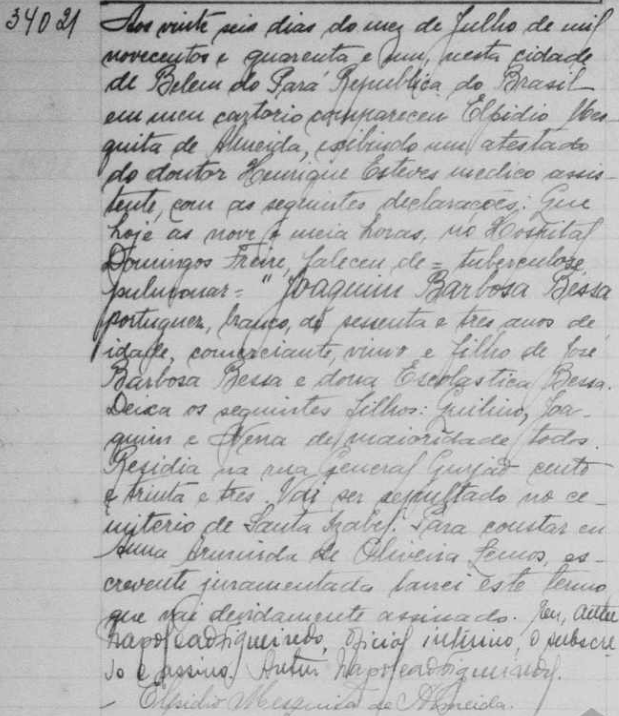 34021 Aos vinte seis dias do mez de Julho de mil
novecentos e quarenta e um, nesta cidade
de Belem do Pará Republica do Brasil
em meu cartorio compareceu Elpidio Mes-
quita de Almeida, exibindo um atestado
do doutor Henrique Esteves medico assis-
tente, com as seguintes declarações: Que
hoje as nove e meia horas, no Hospital
Domingos Freire, faleceu de = tuberculose
pulmonar = "Joaquim Barbosa Bessa
portuguez, branco, de sessenta e tres anos de
idade, comerciante, viuvo e filho de José
Barbosa Bessa e dona Escolastica Bessa.
Deixa os seguintes filhos: Joa-
quim e de maioridade todos.
Residia na rua General Gurjão cento
e trinta e tres. Vai ser sepultado no ce-
miterio de Santa Izabel. Para constar eu
Anna Arminda de Oliveira Lemos, es-
crevente juramentada lavrei este termo
que vai devidamente assinado. Eu,
oficial interino, o subscre
vo e assino.
Elpidio Mesquita de Almeida.